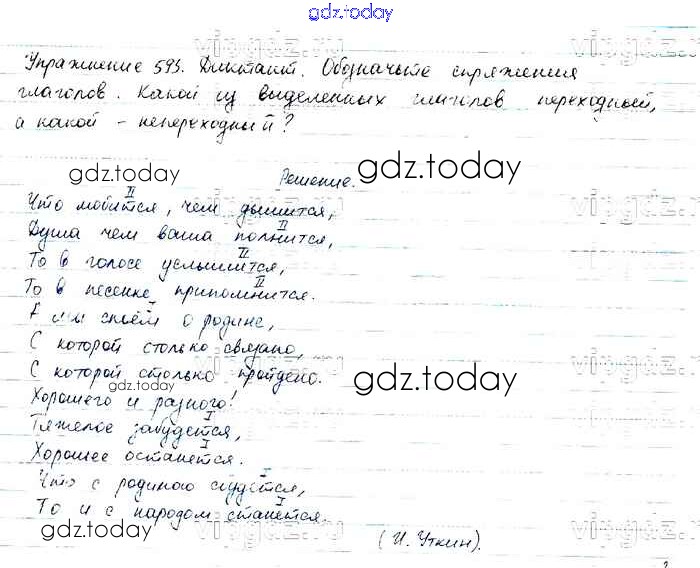 gdz.today
Упражнение 593. Диктант. Обозначьте спряжения
глаголов. Какой из выделенных глаголов переходный,
а какой - непереходный?
gdz.today
Решение.
gdz.today
Что любится, чем дышится,
Душа чем ваша полнится,
То в голосе услышится,
То в песенке припомнится.
А мы споём о родине,
С которой столько связано,
С которой столько пройдено.
gdz.today
gdz.today
Хорошего и разного!
Тяжелое забудется,
Хорошее останется.
Что с родиною сбудется,
То и с народом станется.
gdz.today
gdz.today
(И. Уткин).